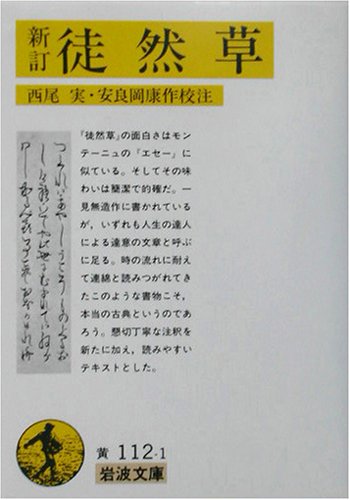 新訂 徒然草
西尾 実・安良岡康作校注
『徒然草』の面白さはモン
テーニュの『エセー』に
似ている。そしてその味
わいは簡潔で的確だ。一
見無造作に書かれている
が、いずれも人生の達人
による達意の文章と呼ぶ
に足る。時の流れに耐え
て連綿と読みつがれてき
たこのような書物こそ,
本当の古典というのであ
ろう。懇切丁寧な注釈を
新たに加え,読みやすい
テキストとした。
黄 112-1
岩波文庫